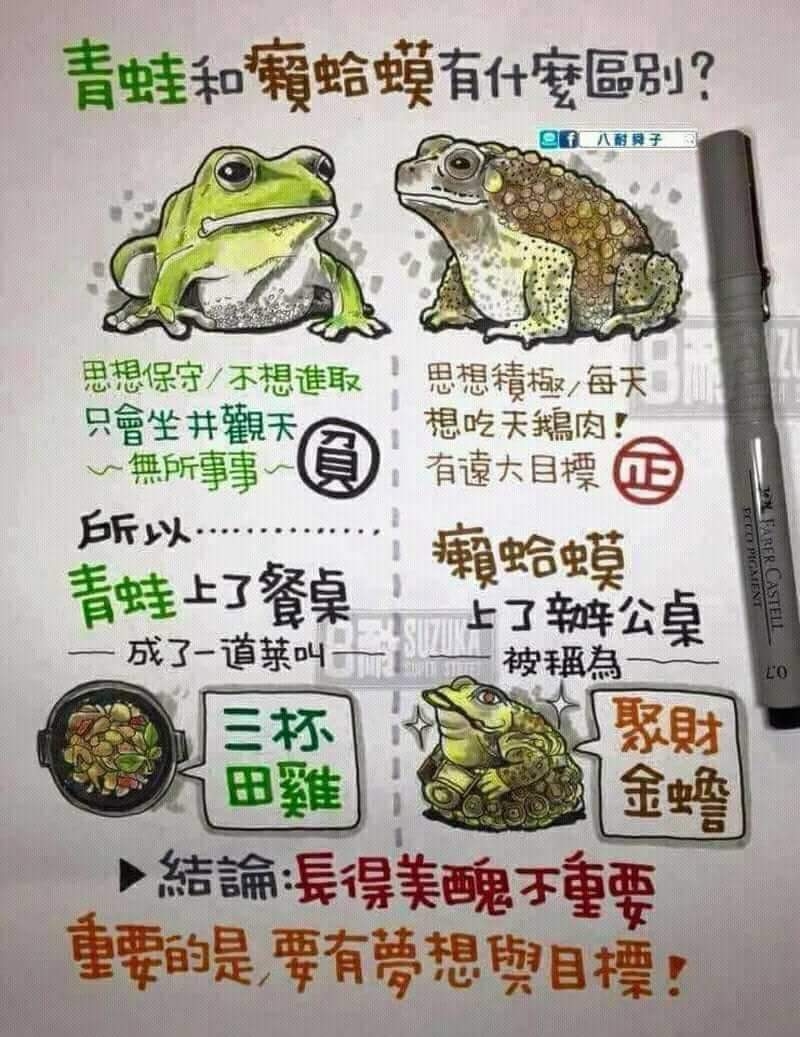 青蛙和癩蛤蟆有什麼區別?
八耐舜子
思想保守/不想進取
只會坐井觀天
~無所事事~
負
思想積極/每天
想吃天鵝肉!
有遠大目標
正
所以............
青蛙上了餐桌
成了一道菜叫
三杯
田雞
癩蛤蟆
上了辦公桌
被稱為
聚財
金蟾
▶結論:長得美醜不重要
重要的是,要有夢想與目標!
日耐 SUZUKA
FABER CASTELL
ECCO PIGMENT
0.7